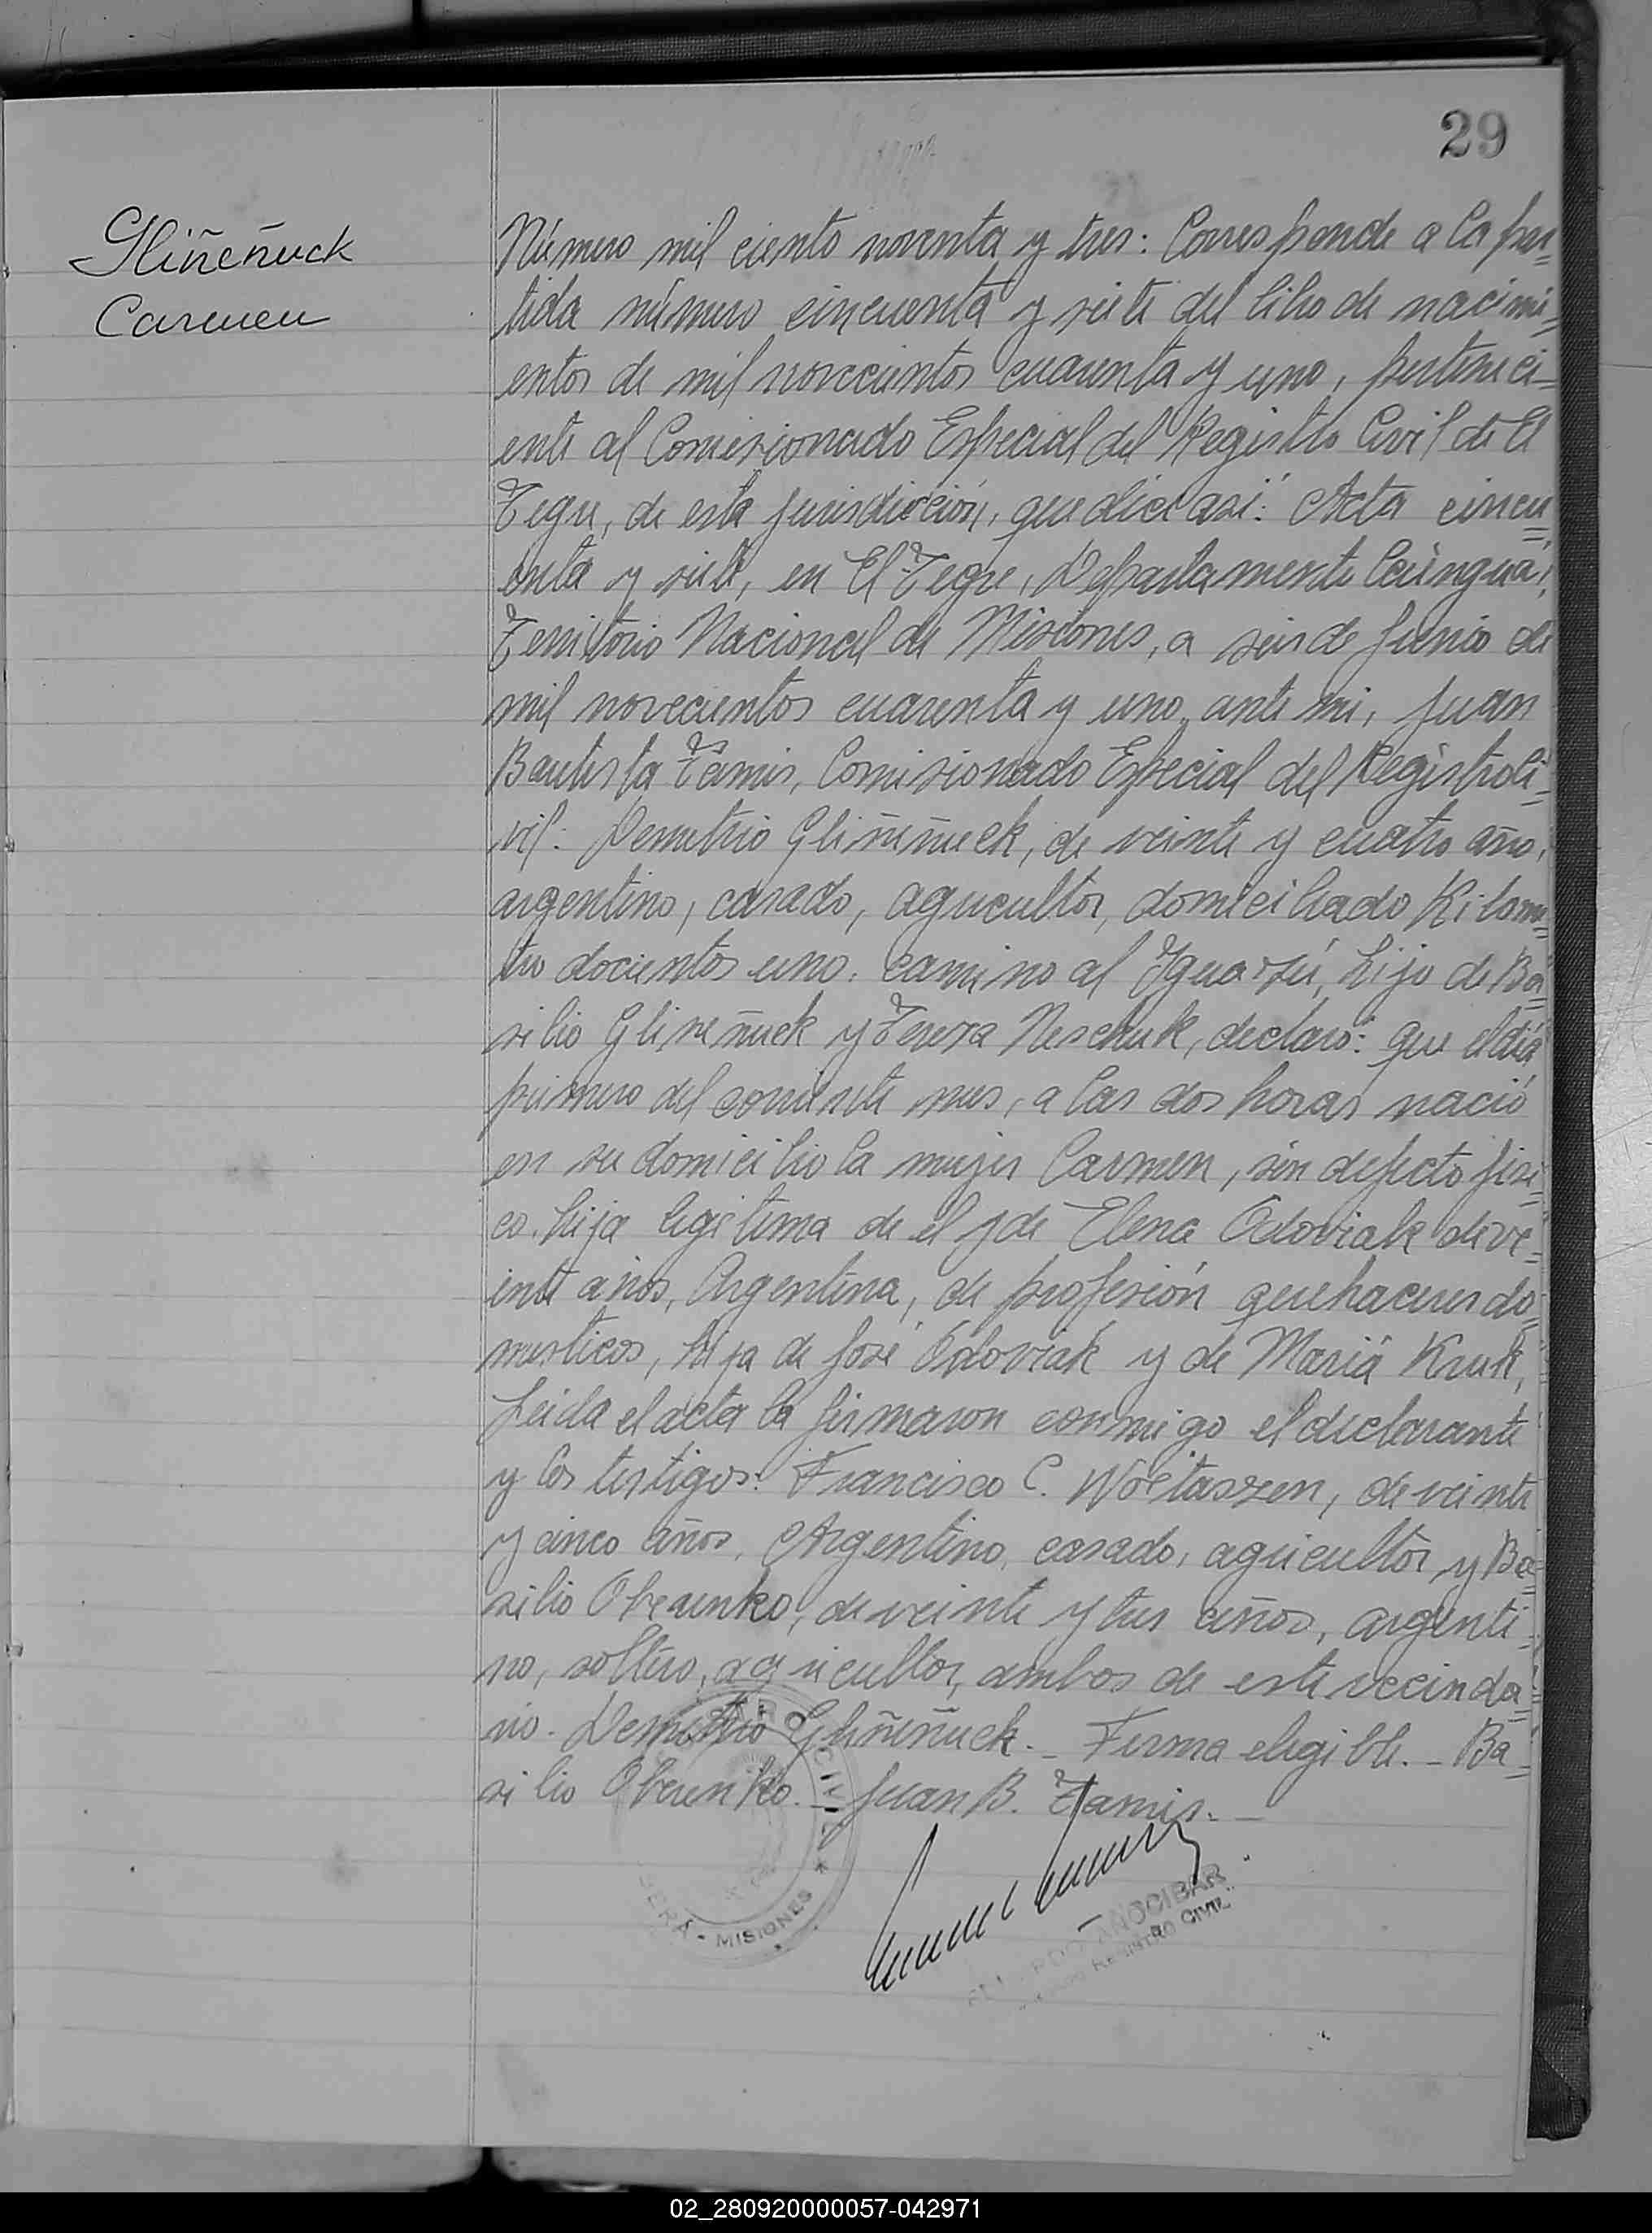 29
Gliñeñuck
Carmen
Número mil ciento noventa y tres: Corresponde a la par=
tida número cincuenta y siete del libro de nacimi=
entos de mil novecientos cuarenta y uno, perteneci=
ente al Comisionado Especial del Registro Civil de El
Tegre, de esta jurisdicción, que dice así: Acta cincu=
enta y siete, en El Tegre, Departamento Cainguá,
Territorio Nacional de Misiones, a seis de Junio de
mil novecientos cuarenta y uno, ante mi, Juan
Bautista Tamis, Comisionado Especial del Registro Ci=
vil: Demetrio Gliñeñuck, de veinte y cuatro año,
argentino, casado, agricultor, domiciliado Kilome=
tro docientos uno, camino al Iguazú, hijo de Ba=
silio Glineñuck y Teresa Neschuk, declaró: que el día
primero del corriente mes, a las dos horas nació
en su domicilio la mujer Carmen, sin defecto físi=
co. hija legitima de el y de Elena Odoviak de ve=
inte años, Argentina, de profesión quehaceres do=
mesticos, hija de José Odoviak y de María Kruk,
Leida el acta la firmaron conmigo el declarante
y los testigos: Francisco C. Woitaszen, de veinte
y cinco años, Argentino, casado, agricultor y Ba=
silio, de veinte y tres años, argenti=
no, soltero, agricultor, ambos de este vecinda=
rio. Demetrio Gliñeñuck. - Firma elegible. - Ba=
silio Juan B. Tamis. -
CIVIL * MISIONES
ANOCIBAR
REGISTRO CIVIL
02_280920000057-042971